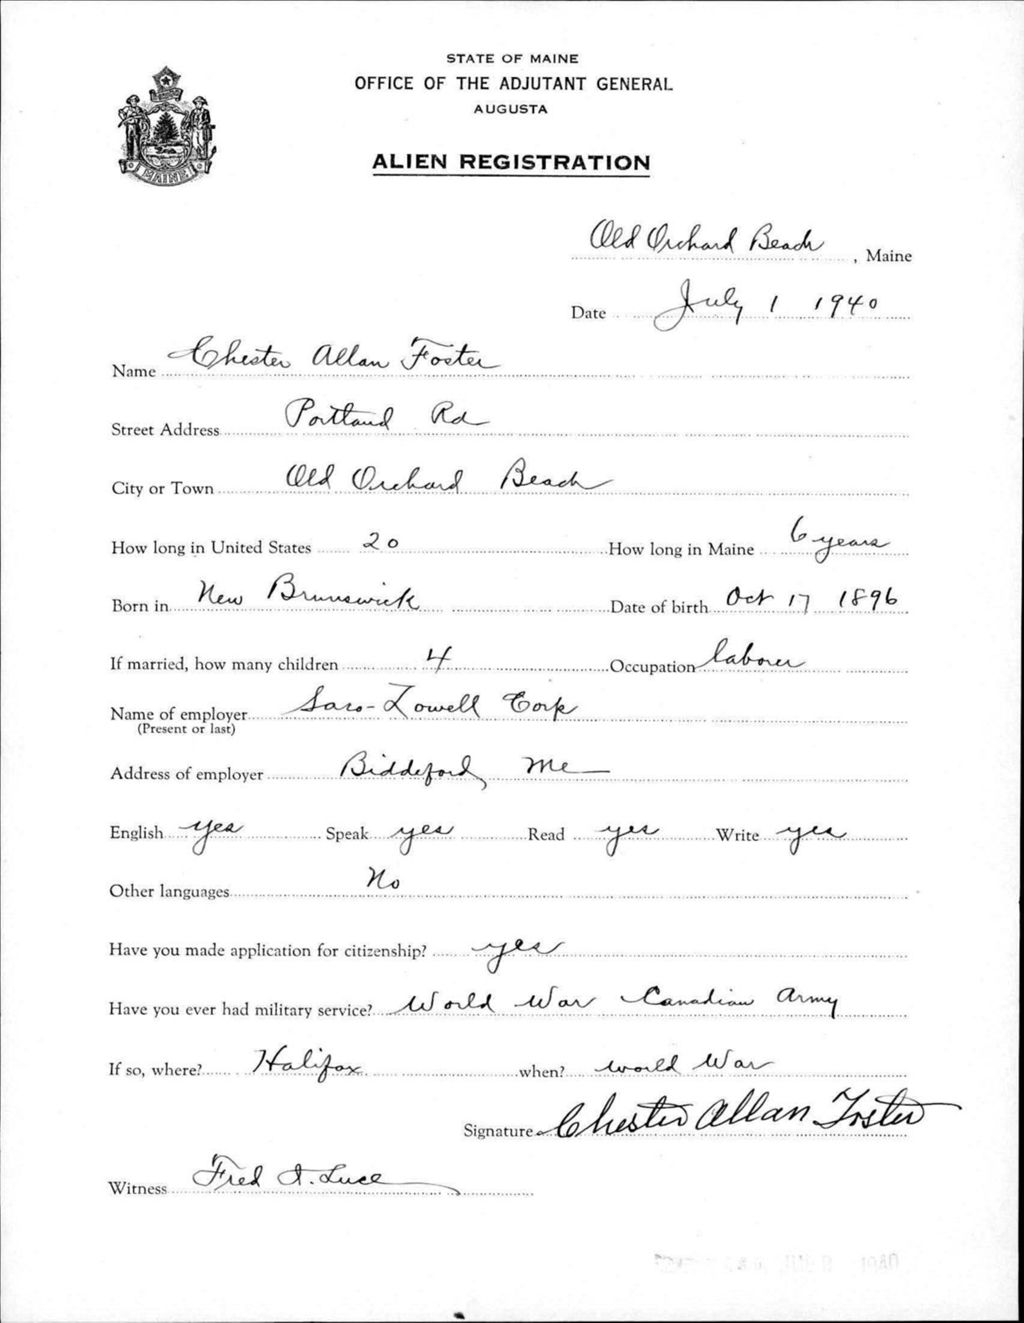 STATE OF MAINE
OFFICE OF THE ADJUTANT GENERAL
AUGUSTA
ALIEN REGISTRATION
MAINE
Old Orchard Beach, Maine
Date July 1 1940
Name Chester Allan Foster
Street Address Portland Rd
City or Town Old Orchard Beach
How long in United States 20 How long in Maine 6 years
Born in New Brunswick Date of birth Oct 17 1896
If married, how many children 4 Occupation laborer
Name of employer Saco-Lowell Corp
(Present or last)
Address of employer Biddeford, Me
English yes Speak yes Read yes Write yes
Other languages No
Have you made application for citizenship? yes
Have you ever had military service? World War Canadian Army
If so, where? Halifax when? World War
Signature Chester Allan Foster
Witness Fred I. Luce